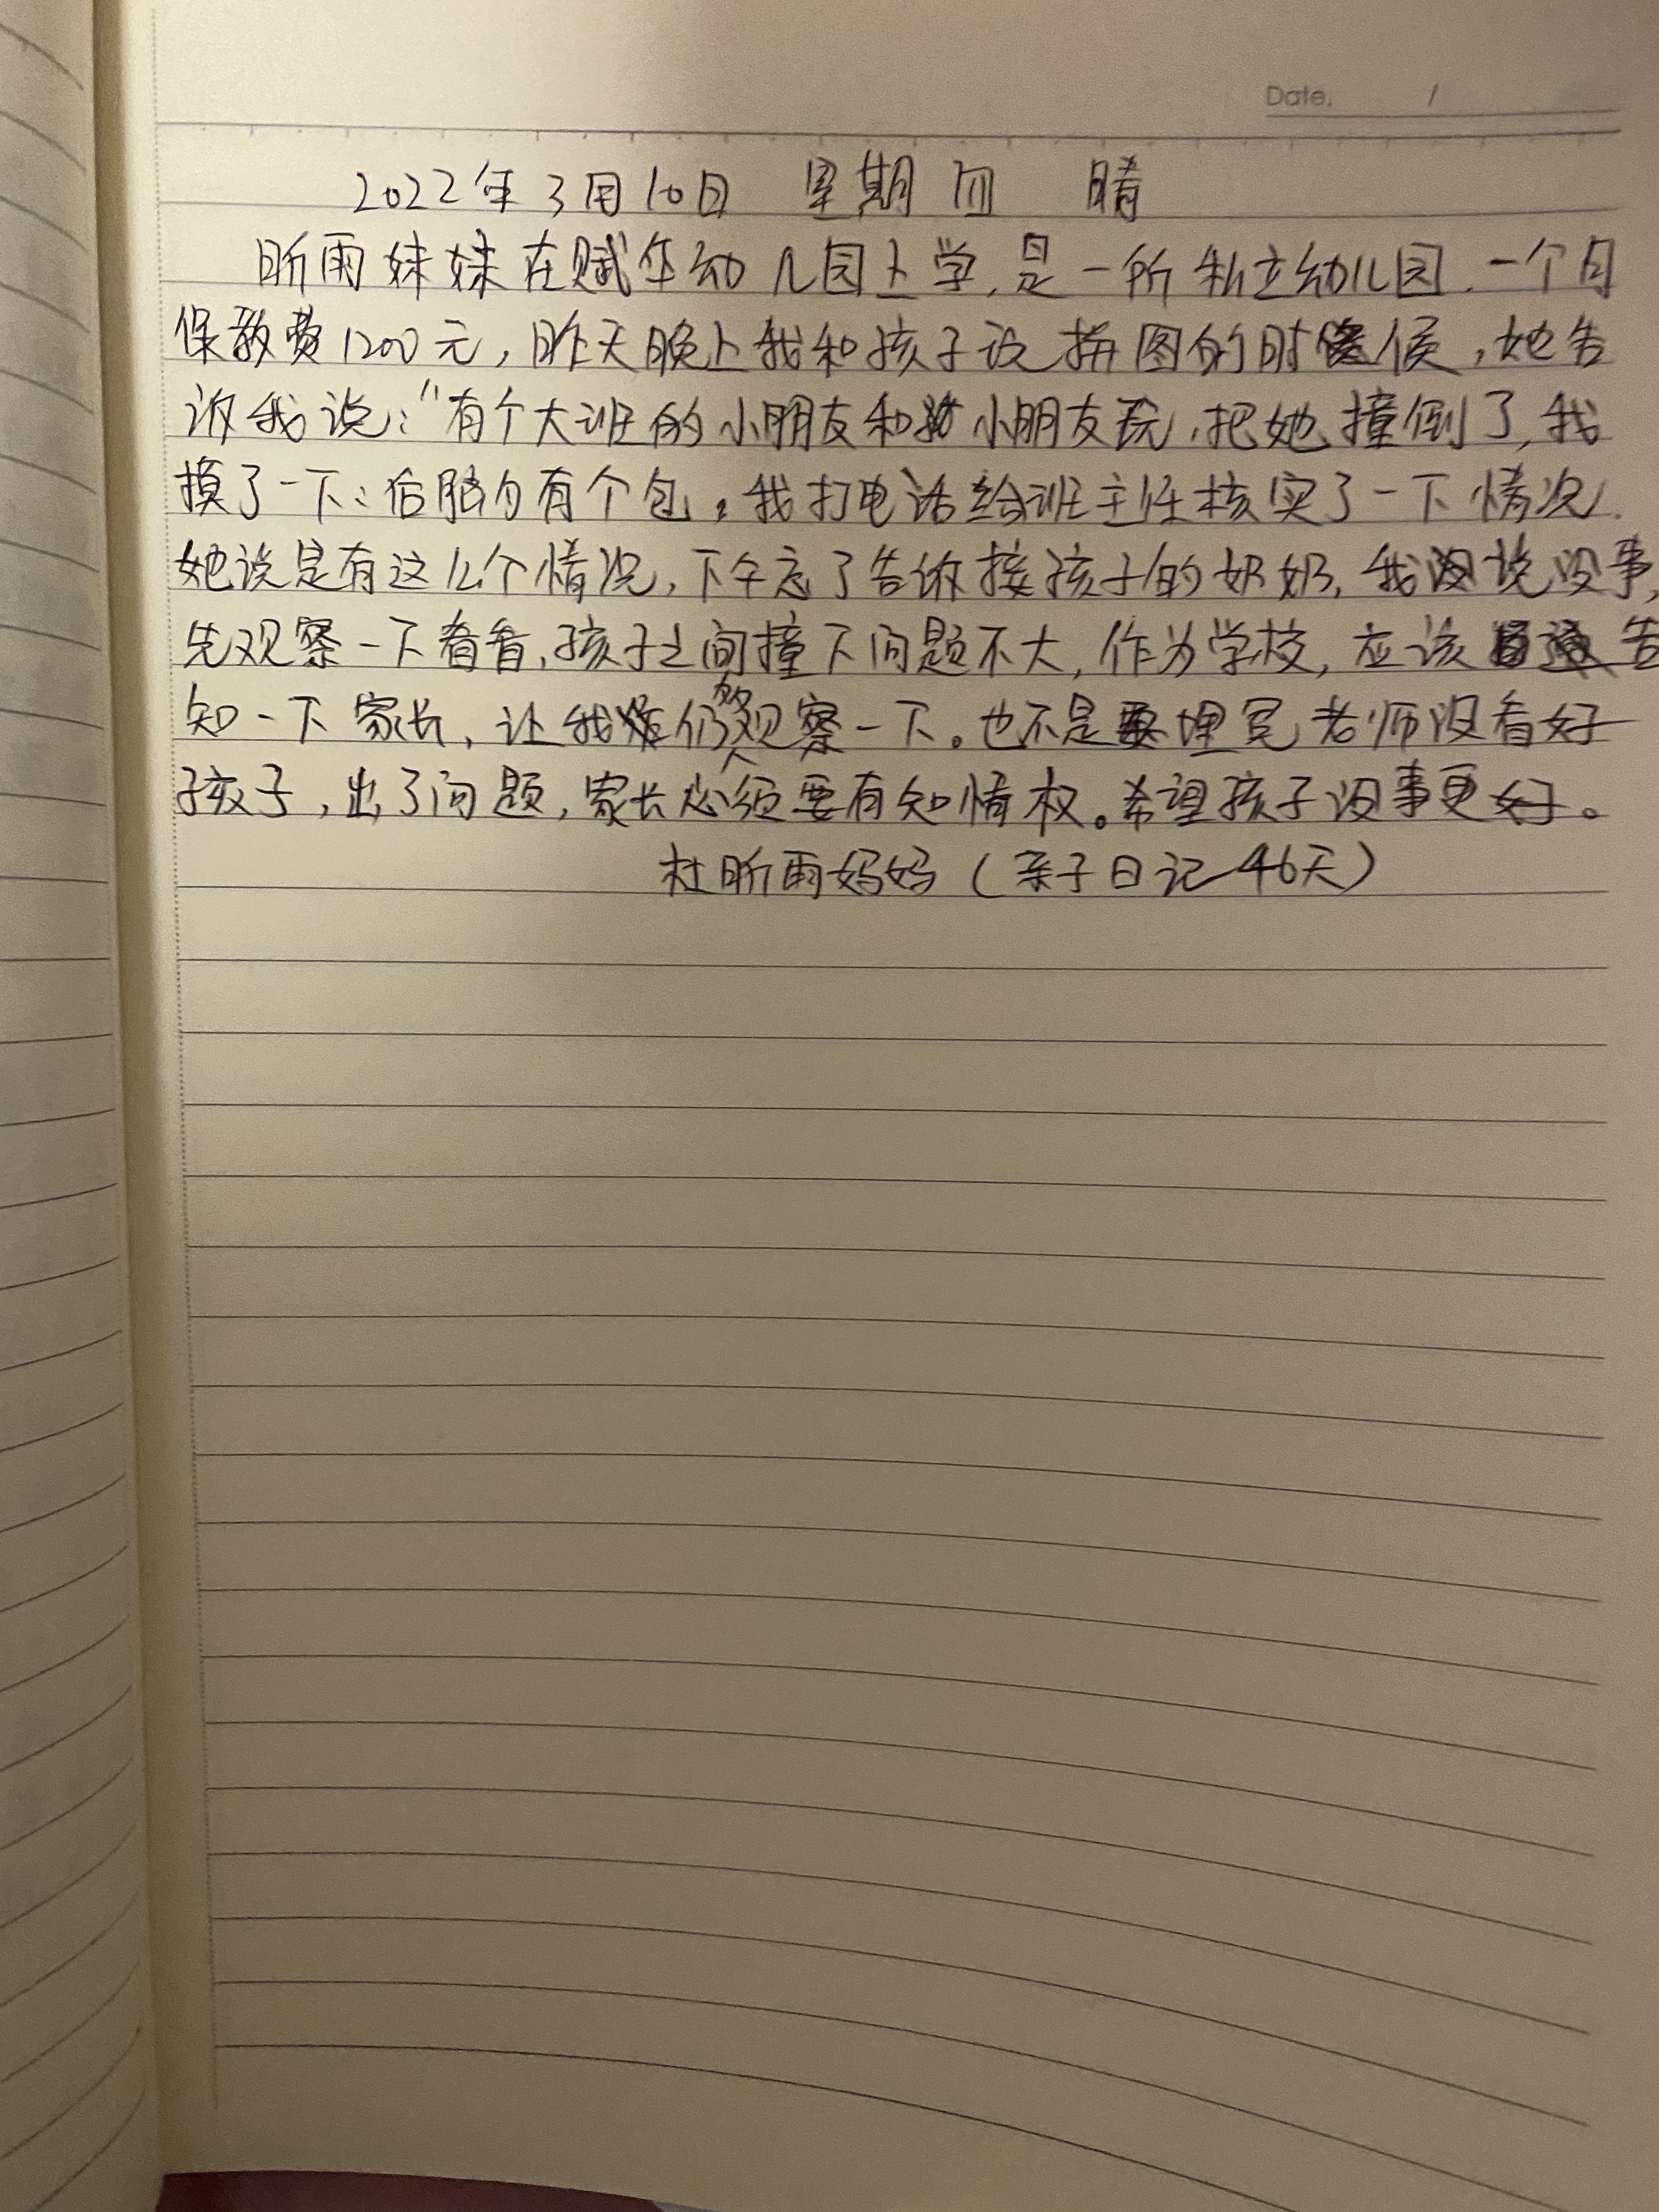 Date. /
2022年3月10日 星期四 晴
昕雨妹妹在赋华幼儿园上学,是一所私立幼儿园.一个月
保教费1200元,昨天晚上我和孩子说拼图的时候,她告
诉我说:“有个大班的小朋友和小朋友玩,把她撞倒了,我
摸了一下:后脑勺有个包。我打电话给班主任核实了一下情况.
她说是有这么个情况,下午忘了告诉接孩子的奶奶,我说没事,
先观察一下看看,孩子之间撞下问题不大,作为学校,应该告
知一下家长,让我们多观察一下。也不是埋冤老师没看好
孩子,出了问题,家长必须要有知情权。希望孩子没事更好。
杜昕雨妈妈(亲子日记46天)